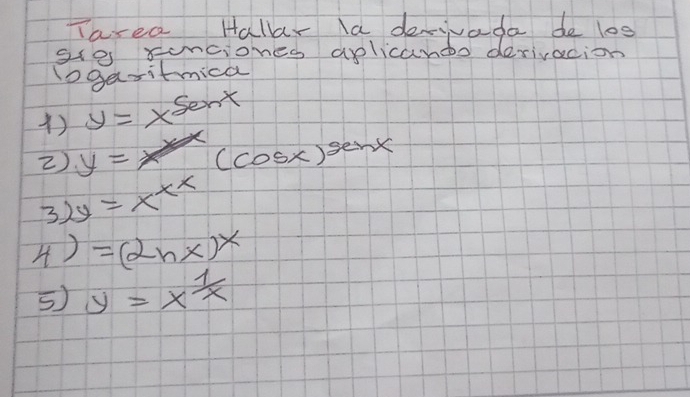 Tarea Hallar la derivada de los
sig funciones aplicando derivacion
logaritmica
1) y = x^senx
2) y = (cosx)^senx
3) y = x^x^x
4) = (Lnx)^x
5) y = x^1/x